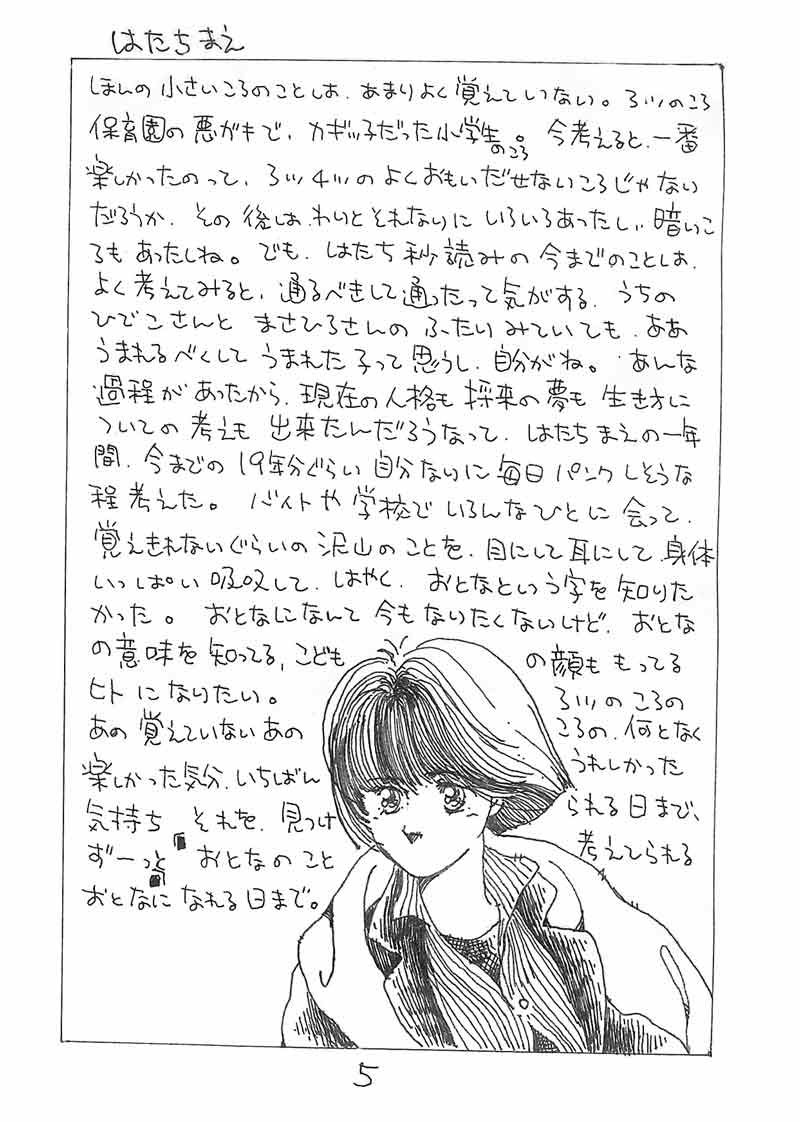 はたちまえ
ほんの小さいころのことは、あまりよく覚えていない。3ツのころ
保育園の悪ガキで、カギッ子だった小学生のころ。今考えると、一番
楽しかったのって、3ツ4ツのよくおもいだせないころじゃない
だろうか、その後は、わりとそれなりにいろいろあったし、暗いこ
ろもあったしね。でも、はたち秒読みの今までのことは、
よく考えてみると、通るべきして通ったって気がする、うちの
ひでこさんとまさひろさんのふたりみていても、ああ
うまれるべくしてうまれた子って思うし、自分がね。あんな
過程があったから、現在の人格も将来の夢も生き方に
ついての考えも出来たんだろうなって、はたちまえの一年
間、今までの19年分ぐらい自分ないに毎日パンクしそうな
程考えた。バイトや学校でいろんなひとに会って、
覚えきれないぐらいの沢山のことを、目にして耳にして、身体
いっぱい吸収して、はやく、おとなという字を知りた
かった。おとなになんて今もなりたくないけど、おとな
の意味を知ってる、こどもの顔ももってる
ヒトになりたい。3ツのころの
あの覚えていないあのころの、何となく
楽しかった気分、いちばんうれしかった
気持ちそれを、見つけられる日まで、
ずーっとおとなのこと考えてられる
おとなになれる日まで。
5